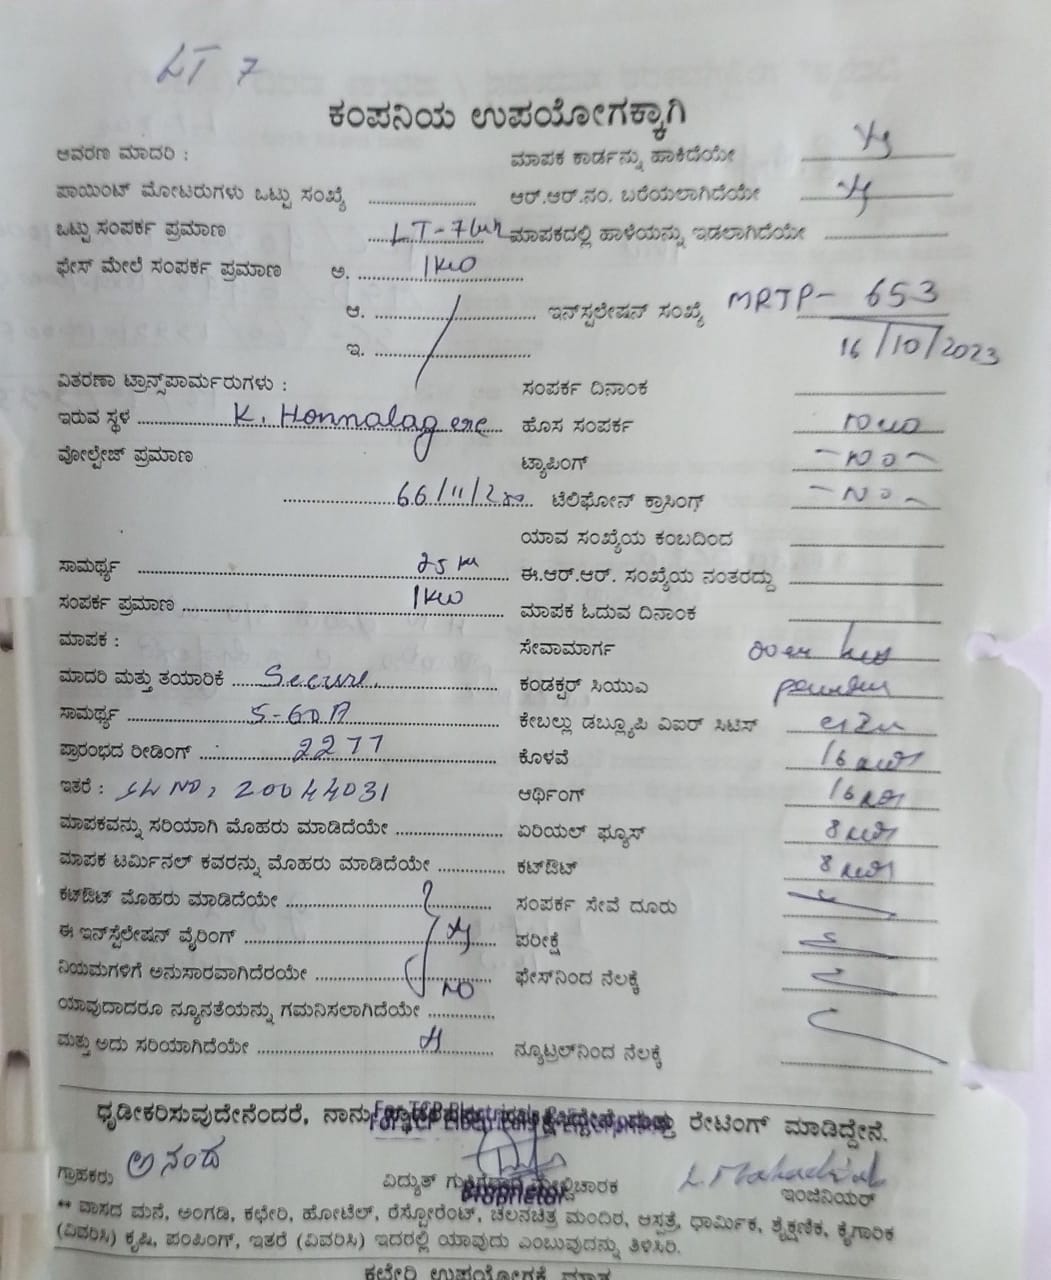 LT 7
ಕಂಪನಿಯ ಉಪಯೋಗಕ್ಕಾಗಿ
ಆವರಣ ಮಾದರಿ : ಮಾಪಕ ಕಾರ್ಡನ್ನು ಹಾಕಿದೆಯೇ
ಪಾಯಿಂಟ್ ಮೋಟರುಗಳು ಒಟ್ಟು ಸಂಖ್ಯೆ ಆರ್.ಆರ್.ನಂ. ಬರೆಯಲಾಗಿದೆಯೇ
ಒಟ್ಟು ಸಂಪರ್ಕ ಪ್ರಮಾಣ LT-7 ಮಾಪಕದಲ್ಲಿ ಹಾಳೆಯನ್ನು ಇಡಲಾಗಿದೆಯೇ
ಫೇಸ್ ಮೇಲೆ ಸಂಪರ್ಕ ಪ್ರಮಾಣ ಅ. 1KW
ಆ. ಇನ್‌ಸ್ಟಲೇಷನ್ ಸಂಖ್ಯೆ MRTP- 653
ಇ. 16/10/2023
ವಿತರಣಾ ಟ್ರಾನ್ಸ್‌ಪಾರ್ಮರುಗಳು : ಸಂಪರ್ಕ ದಿನಾಂಕ
ಇರುವ ಸ್ಥಳ K. Honnalagere ಹೊಸ ಸಂಪರ್ಕ
ವೋಲ್ಟೇಜ್ ಪ್ರಮಾಣ ಟ್ಯಾಪಿಂಗ್ - No -
66/11/ ಟೆಲಿಫೋನ್ ಕ್ರಾಸಿಂಗ್ - No -
ಯಾವ ಸಂಖ್ಯೆಯ ಕಂಬದಿಂದ
ಸಾಮರ್ಥ್ಯ 25 ಈ.ಆರ್.ಆರ್. ಸಂಖ್ಯೆಯ ನಂತರದ್ದು
ಸಂಪರ್ಕ ಪ್ರಮಾಣ 1KW ಮಾಪಕ ಓದುವ ದಿನಾಂಕ
ಮಾಪಕ : ಸೇವಾಮಾರ್ಗ
ಮಾದರಿ ಮತ್ತು ತಯಾರಿಕೆ Secure ಕಂಡಕ್ಟರ್ ಸಿಯುಎ
ಸಾಮರ್ಥ್ಯ 5-60A ಕೇಬಲ್ಲು ಡಬ್ಲ್ಯೂಪಿ ಎಐರ್ ಸಿಟಿಸ್
ಪ್ರಾರಂಭದ ರೀಡಿಂಗ್ 2277 ಕೊಳವೆ 16
ಇತರೆ : SL NO: 20044031 ಆರ್ಥಿಂಗ್ 16
ಮಾಪಕವನ್ನು ಸರಿಯಾಗಿ ಮೊಹರು ಮಾಡಿದೆಯೇ ಏರಿಯಲ್ ಫ್ಯೂಸ್ 8
ಮಾಪಕ ಟರ್ಮಿನಲ್ ಕವರನ್ನು ಮೊಹರು ಮಾಡಿದೆಯೇ ಕಟ್‌ಔಟ್ 8
ಕಟ್‌ಔಟ್ ಮೊಹರು ಮಾಡಿದೆಯೇ ಸಂಪರ್ಕ ಸೇವೆ ದೂರು
ಈ ಇನ್‌ಸ್ಟಲೇಷನ್ ವೈರಿಂಗ್ ಪರೀಕ್ಷೆ
ನಿಯಮಗಳಿಗೆ ಅನುಸಾರವಾಗಿದೆರಯೇ NO ಫೇಸ್‌ನಿಂದ ನೆಲಕ್ಕೆ
ಯಾವುದಾದರೂ ನ್ಯೂನತೆಯನ್ನು ಗಮನಿಸಲಾಗಿದೆಯೇ
ಮತ್ತು ಅದು ಸರಿಯಾಗಿದೆಯೇ ನ್ಯೂಟ್ರಲ್‌ನಿಂದ ನೆಲಕ್ಕೆ
ಧೃಡೀಕರಿಸುವುದೇನೆಂದರೆ, ನಾನು ರೇಟಿಂಗ್ ಮಾಡಿದ್ದೇನೆ.
ಆನಂದ
ಗ್ರಾಹಕರು ವಿದ್ಯುತ್ Proprietor ಇಂಜಿನಿಯರ್
** ವಾಸದ ಮನೆ, ಅಂಗಡಿ, ಕಛೇರಿ, ಹೋಟೆಲ್, ರೆಸ್ಟೋರೆಂಟ್, ಚಲನಚಿತ್ರ ಮಂದಿರ, ಆಸ್ಪತ್ರೆ, ಧಾರ್ಮಿಕ, ಶೈಕ್ಷಣಿಕ, ಕೈಗಾರಿಕ
(ವಿವರಿಸಿ) ಕೃಷಿ, ಪಂಪಿಂಗ್, ಇತರೆ (ವಿವರಿಸಿ) ಇದರಲ್ಲಿ ಯಾವುದು ಎಂಬುವುದನ್ನು ತಿಳಿಸಿರಿ.